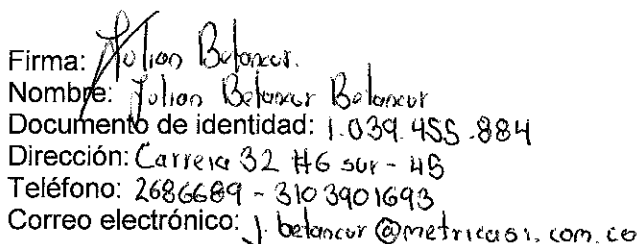 Firma: Julian Betancur.
Nombre: Julian Betancur Betancur
Documento de identidad: 1.039.455.884
Dirección: Carrera 32 #6 sur - 45
Teléfono: 2686689 - 3103901693
Correo electrónico: j.betancur@metricasi.com.co